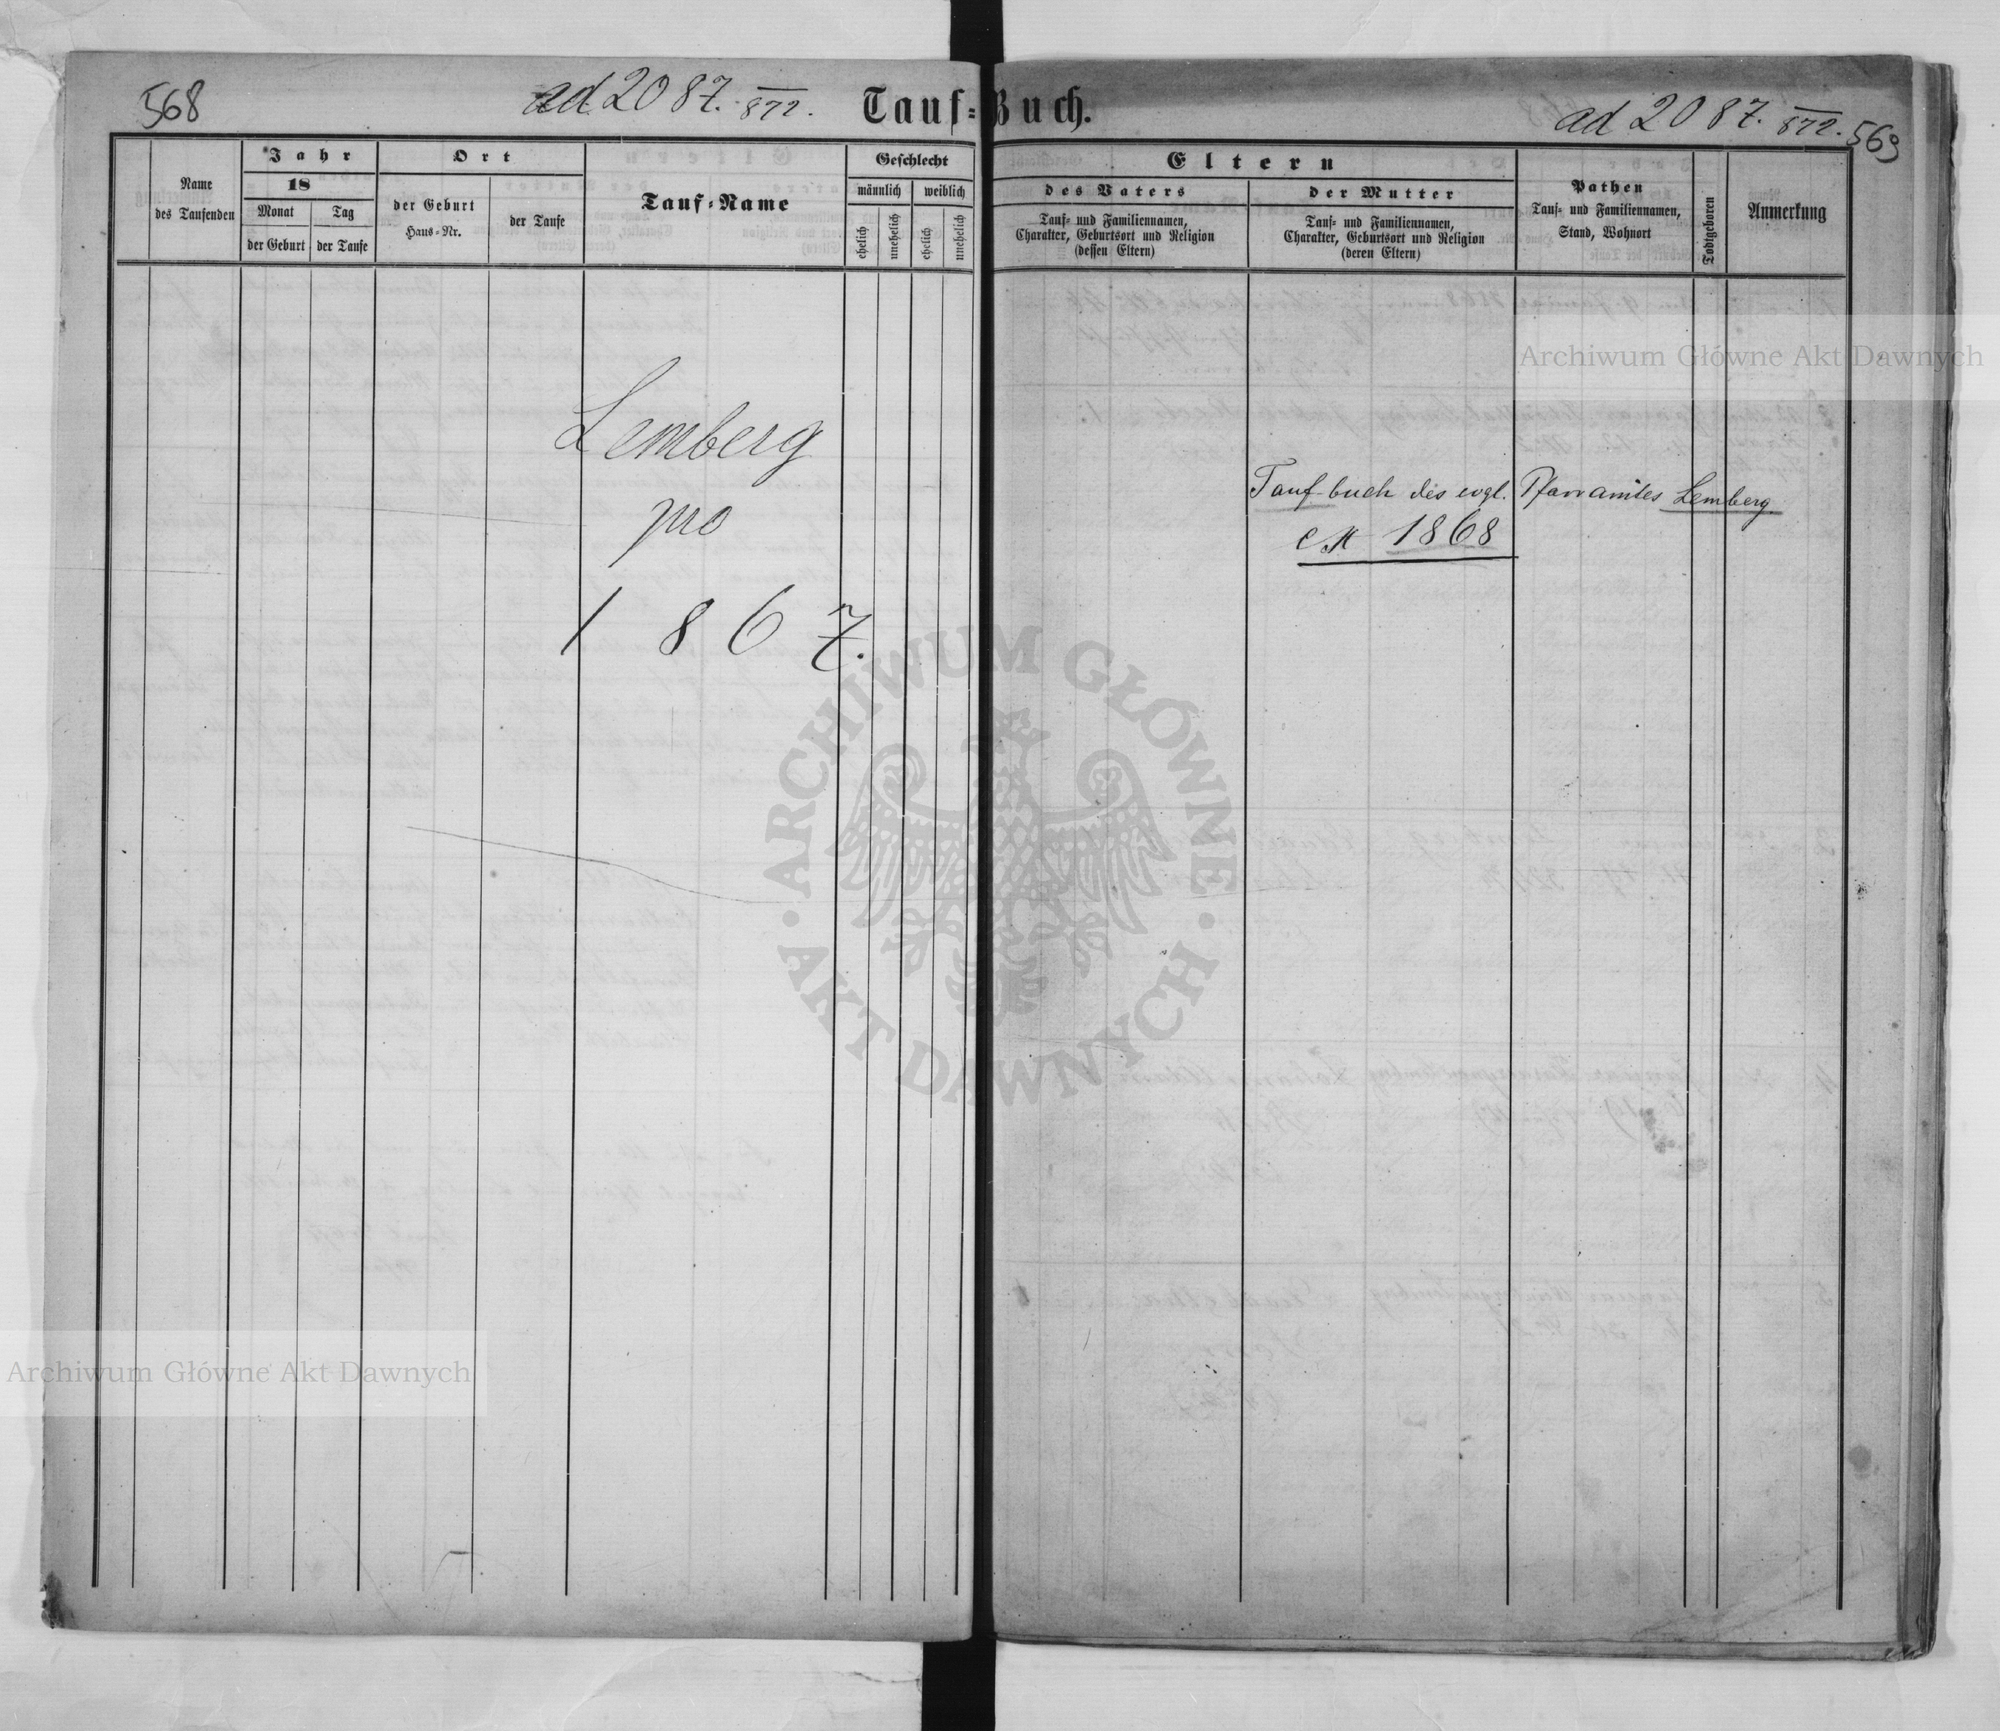 568
ad 2087. 872.
Tauf-Buch.
ad 2087. 872. 569
Name
des Taufenden
Jahr
18
Monat
der Geburt
Tag
der Taufe
Ort
der Geburt
Haus-Nr.
der Taufe
Tauf-Name
Geschlecht
männlich
weiblich
ehelich
unehelich
ehelich
unehelich
Eltern
des Vaters
Tauf- und Familiennamen,
Charakter, Geburtsort und Religion
(dessen Eltern)
der Mutter
Tauf- und Familiennamen,
Charakter, Geburtsort und Religion
(deren Eltern)
Pathen
Tauf- und Familiennamen,
Stand, Wohnort
Todtgeboren
Anmerkung
Lemberg
pro
1867.
Taufbuch des evgl. Pfarramtes Lemberg
1868
Archiwum Główne Akt Dawnych
ARCHIWUM GŁÓWNE
AKT DAWNYCH
Archiwum Główne Akt Dawnych